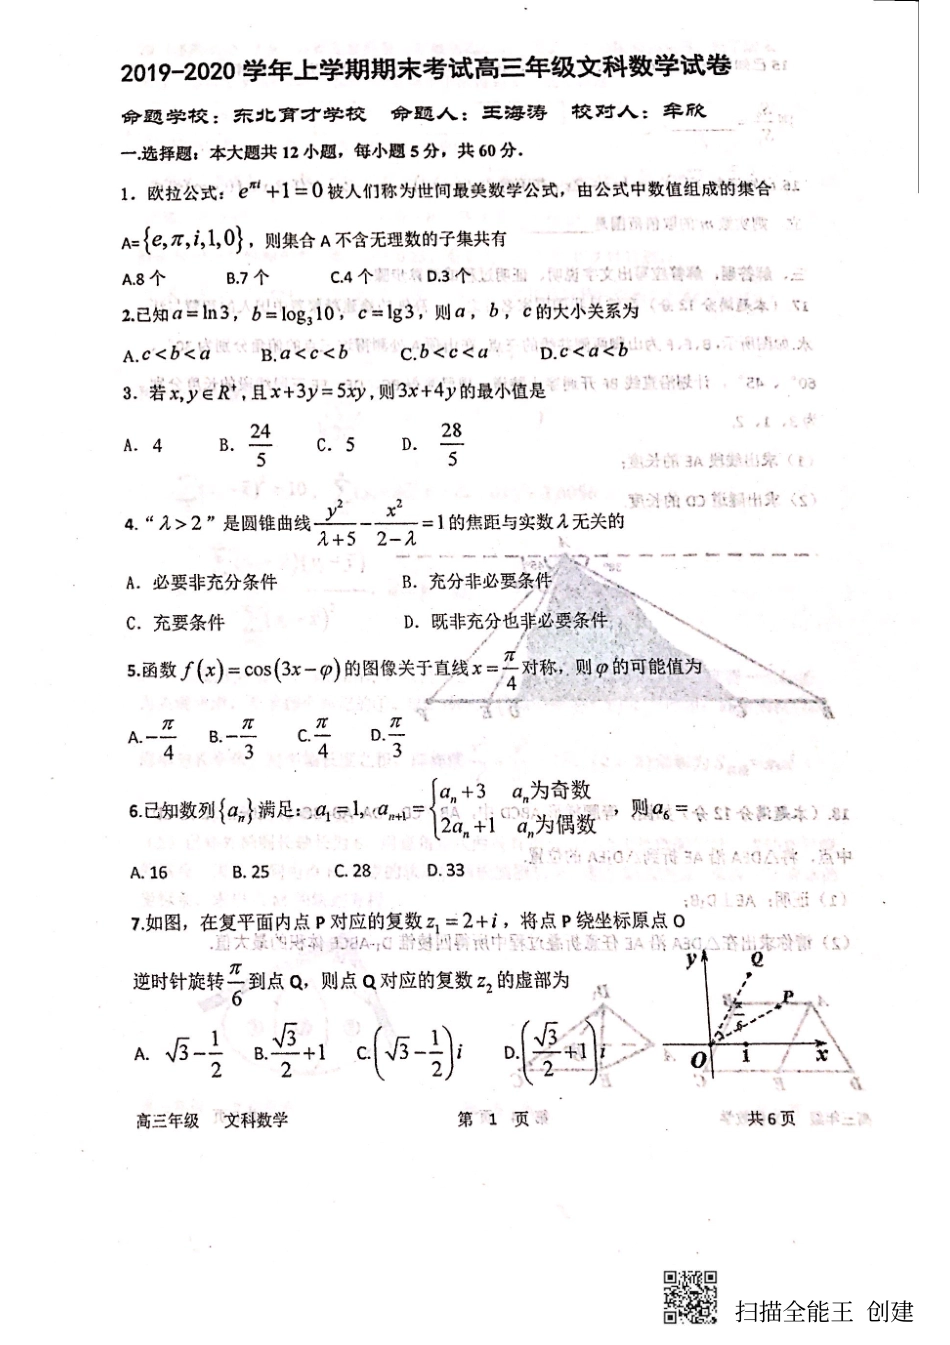 2019-2020学年上学期期末考试高三年级文科数学试卷
命题学校：东北育才学校 命题人：王海涛 校对人：牟欣
一.选择题：本大题共12小题，每小题5分，共60分.
1. 欧拉公式：e^{πi}+1=0被人们称为世间最美数学公式，由公式中数值组成的集合
A={e,π,i,1,0}，则集合A不含无理数的子集共有
A.8个 B.7个 C.4个 D.3个
2.已知a=ln3，b=log₃10，c=lg3，则a，b，c的大小关系为
A.c<b<a B.a<c<b C.b<c<a D.c<a<b
3. 若x,y∈R⁺,且x+3y=5xy,则3x+4y的最小值是
A. 4 B. 24/5 C. 5 D. 28/5
4. “λ>2”是圆锥曲线 y²/(λ+5) - x²/(2-λ) =1的焦距与实数λ无关的
A. 必要非充分条件 B. 充分非必要条件
C. 充要条件 D. 既非充分也非必要条件
5.函数f(x)=cos(3x-φ)的图像关于直线x=π/4对称，则φ的可能值为
A.-π/4 B.-π/3 C.π/4 D.π/3
6.已知数列{aₙ}满足：a₁=1，aₙ₊₁={aₙ+3 aₙ为奇数 2aₙ+1 aₙ为偶数，则a₆=
A. 16 B. 25 C. 28 D. 33
7.如图，在复平面内点P对应的复数z₁=2+i，将点P绕坐标原点O
逆时针旋转π/6到点Q，则点Q对应的复数z₂的虚部为
A. √3-1/2 B. √3/2+1 C.(√3-1/2)i D.(√3/2+1)i
y Q P π/6 O 1 x
高三年级 文科数学 第 1 页 共6页
扫描全能王 创建